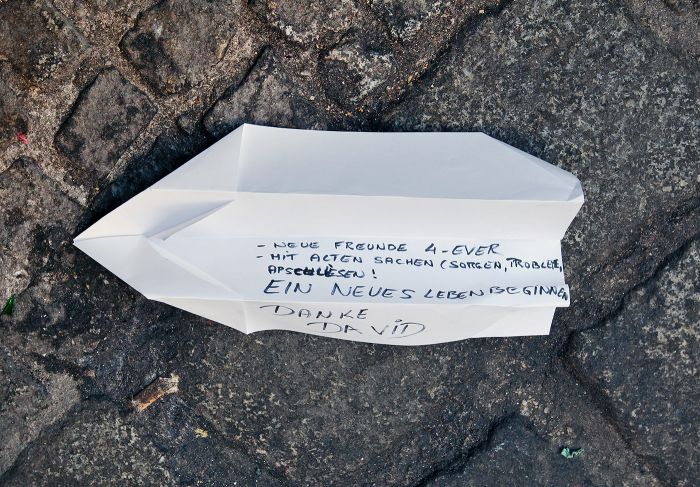 - NEUE FREUNDE 4-EVER
- MIT ALTEN SACHEN (SORGEN, PROBLEME,
ABSCHLIESSEN!
EIN NEUES LEBEN BEGINNEN
DANKE
DAVID